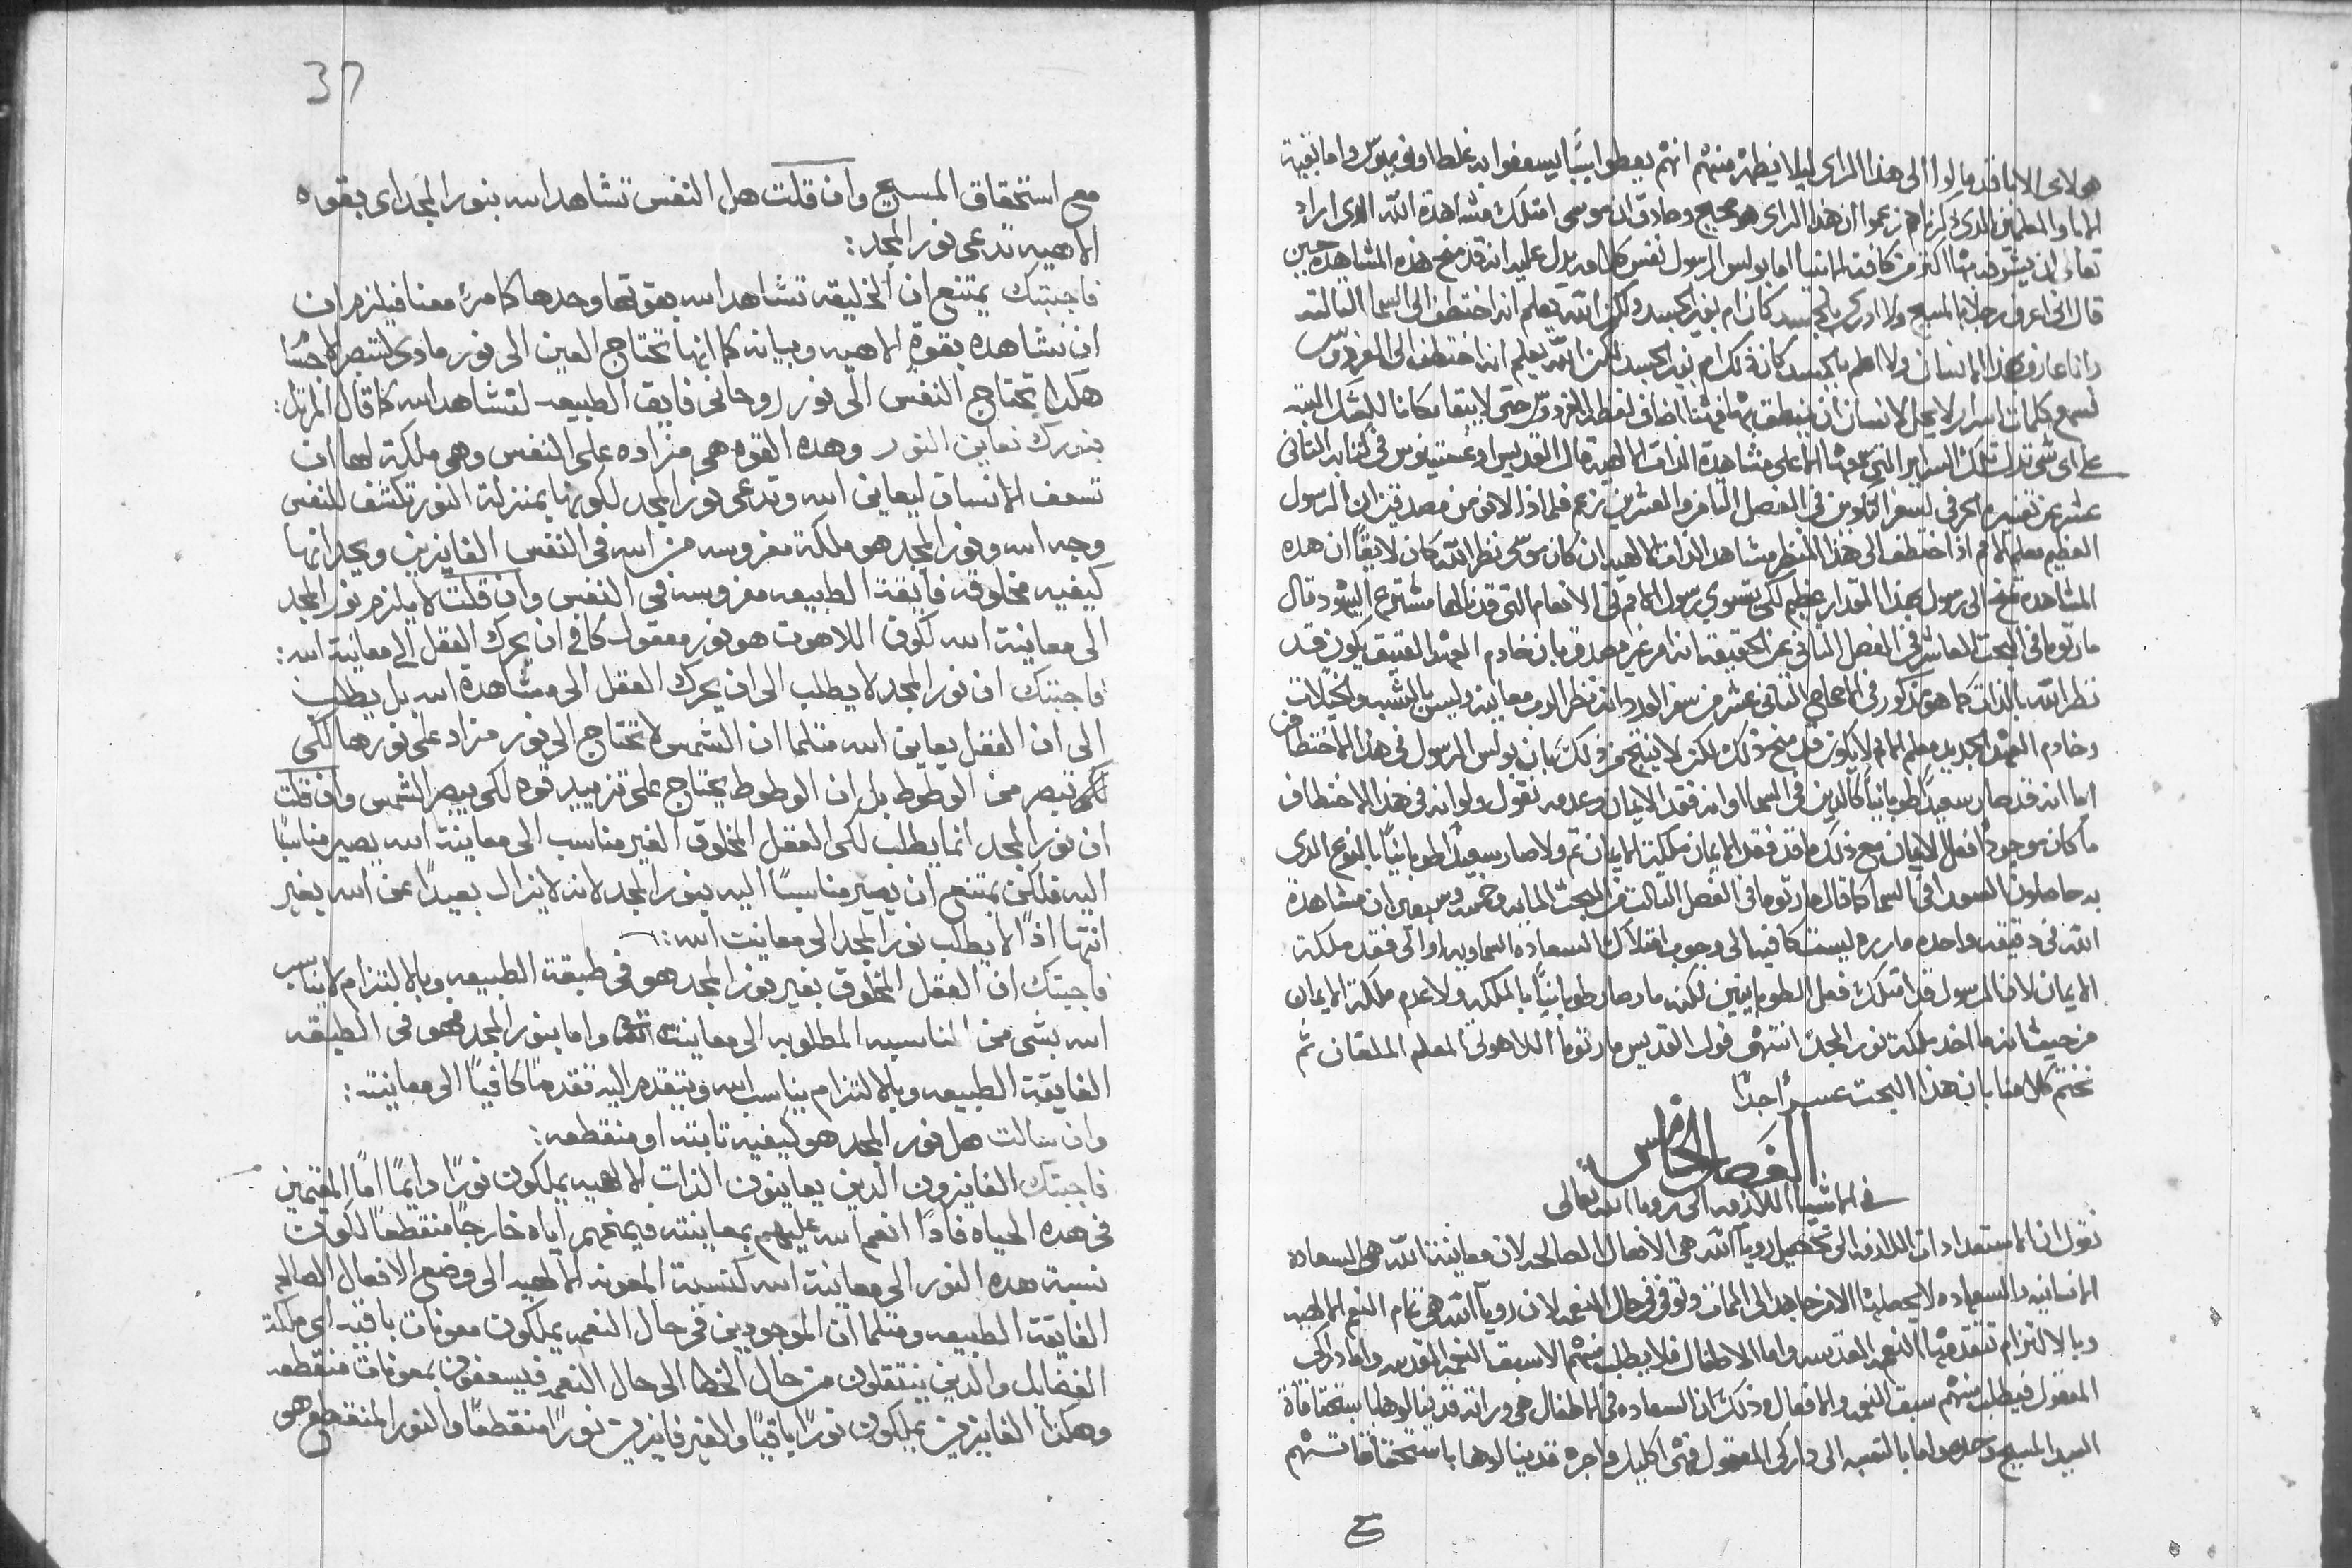 هولاى الابا قد مالوا الى هذا الراى ليلا يظهر منهم انهم يعطوا سببًا يسعفوا به غلط اونوميوس واما بقية
الابا والمعلمين الدى دكرناهم زعموا ان هذا الراى هو صحيح وصادق ان موسى امتلك مشاهدة الله الدى اراد
تعالى ان يشرفه بها اكتر من كافة الانبيا اما بولس الرسول نفس كلامه يدل عليه انه قد منح هذه المشاهدة حين
قال انى اعرف رجلا بالمسيح ولا ادرى بالجسد كان ام بغير الجسد ولكن الله يعلم انه اختطف الى السما التالته
وانا عارف بهذا الانسان ولا اعلم بالجسد كان ذلك ام بغير الجسد لكن الله يعلم انه اختطف الى الفردوس
لسمع كلمات اسرار لا يحل لانسان ان ينطق بها فهنا اضاف لفظة الفردوس حتى لا يبقا مكانا للشك البته
على اى شى تدل تلك السراير التى عرفها الا على مشاهدة الذات الالهيه قال القديس اوغستينوس فى كتابه التانى
عشر عن تفسيره الحرفى لسفر التكوين فى الفصل التامن والعشرين زعم فلماذا لا نومن مصدقين ان الرسول
العظيم معلم الامم اذا اختطف الى هذا المنظر مشاهد الذات الالهيه ان كان موسى نظر الله كان لايقًا ان هده
المشاهدة تمنح الى رسول بهذا المقدار عظيم لكى يستوي رسول الامم فى الانعام التى قد نالها مشترع اليهود قال
مار توما فى البحت العاشر فى الفصل التانى عن الحقيقه انه امر غير مصدق بان خادم العهد العتيق يكون قد
نظر الله بالذات كما هو مذكور فى الاصحاح التانى عشر من سفر العدد انه نظر الرب معاينه وليس بالشبه والخيالات
وخادم العهد الجديد معلم الامم لا يكون قد منح ذلك لكن لا ينتج من ذلك بان بولس الرسول فى هذا الاختطاف
اما انه قد صار سعيدًا طوبانيًا كالدين فى السما او انه فقد الايمان وعدمه نقول ولو انه فى هذا الاختطاف
ما كان موجودًا فعل الايمان مع ذلك ما قد فقد الايمان ملكية الايمان تم ولا صار سعيدًا طوبانيًا بالنوع الدى
به حاصلون السعدا فى السما كما قال مار توما فى الفصل التالت من البحت المايه وخمسه وسبعين ان مشاهدة
الله فى دقيقه واحده ماره ليست كافيه الى وجوب امتلاك السعاده السماويه او الى فقد ملكة
الايمان لان الرسول قد امتلك فعل الطوبانيين لكنه ما صار طوبانيًا بالملكه ولا عدم ملكة الايمان
من حيت انه ما اخد ملكة نور المجد انتهى قول القديس مار توما اللاهوتى المعلم الملفان ثم
نختم كلامنا بان هذا البحت عسرًا جدًا
الفصل الخامس
فى الاشيا اللازمه الى رويا الله تعالى
نقول ان الاستعدادات اللازمه الى تحصيل رويا الله هى الافعال الصالحه لان معاينة الله هى السعاده
الانسانيه والسعاده لا يحصلها الا من جاهد الى الممات وتوفى فى حال النعمه لان رويا الله هى تمام النعم الالهيه
وبالالتزام تتقدمها النعمه المقدسه واما الاطفال فلا يطلب منهم الا سبق النعمه المقدسه واما دراكى
العقول فيطلب منهم سبق النعمه والافعال وذلك ان السعاده فى الاطفال هى وراته قد ينالوها باستحقاقاة
السيد المسيح وحده واما بالنسبه الى داركى العقول فهى اكليل واجره قد ينالوها باستحقاقاتهم
مع
37
مع استحقاق المسيح وان قلت هل النفس تشاهد الله بنور المجد اى بقوه
الاهيه تدعى نور المجد:
فاجبتك يمتنع ان الخليقه تشاهد الله بقوتها وحدها كما مرّ معنا فيلزم ان
ان تشاهده بقوة الاهيه وبيانه كما انها تحتاج العين الى نور مادى لتبصر الاجسام
هكذا تحتاج النفس الى نور روحانى فايق الطبيعه لتشاهد الله كما قال المرتل:
بنورك نعاين النور وهده القوه هى مزاده على النفس وهى ملكة لها ان
تسعف الانسان ليعاين الله وتدعى نور المجد لكونها بمنزلة النور تكشف للنفس
وجه الله ونور المجد هو ملكة مغروسه من الله فى النفس الفايزين ويحد انها
كيفيه مخلوقه فايقة الطبيعه مغروسه فى النفس وان قلت لا يلزم نور المجد
الى معاينة الله لكون اللاهوت هو نور معقول كافى ان يحرك العقل الى معاينة الله:
فاجبتك ان نور المجد لا يطلب الى ان يحرك العقل الى مشاهدة الله بل يطلب
الى ان العقل يعاين الله متلما ان الشمس لا تحتاج الى نور مزاد على نورها لكى
تبصر من الوطوط بل ان الوطوط يحتاج على تزييد قوه لكى يبصر الشمس وان قلت
ان نور المجد انما يطلب لكى العقل المخلوق الغير مناسب الى معاينة الله يصير مناسبًا
اليه فلكن يمتنع ان يصير مناسبًا اليه بنور المجد لانه لا يزال بعيدًا عن الله بغير
انتها اذًا لا يطلب نور المجد الى معاينت الله:
فاجبتك ان العقل المخلوق بغير نور المجد هو فى طبقة الطبيعه وبالالتزام لا يناسب
الله بشى من المناسبه المطلوبه الى معاينت الله واما بنور المجد فهو فى الطبقه
الفايقة الطبيعه وبالالتزام يناسب الله ويتقدم اليه تقدمًا كافيًا الى معاينته:
وان سالت هل نور المجد هو كيفيه تابته او منقطعه:
فاجبتك الفايزون الدين يعاينون الذات الالهيه يملكون نورًا دايمًا اما المقيمين
فى هده الحياه فاذا انعم الله عليهم بمعاينته فيمنحهم اياه خارجًا منقطعًا لكون
نسبة هده النور الى معاينة الله كنسبة المعونه الالهيه الى وضع الافعال الصالحه
الفايقة الطبيعه ومتلما ان الموجودين فى حال النعمه يملكون معونات باقيه اى ملكة
الفضايل والدين ينتقلون من حال الخطا الى حال النعمه فيسعفون بمعونات منقطعه
وهكذا الفايزين يملكون نورًا باقيًا والغير فايزين نورًا منقطعًا والنور المنقطع هو